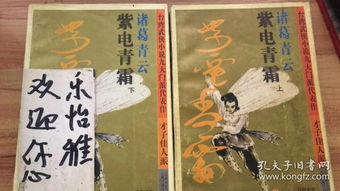 台湾武侠小说九大门派代表作
诸葛青云
紫电青霜
下
才子佳人派
台湾武侠小说九大门派代表作
诸葛青云
紫电青霜
上
紫电青霜
才子佳人派
乐怡雅
欢迎你
孔夫子旧书网